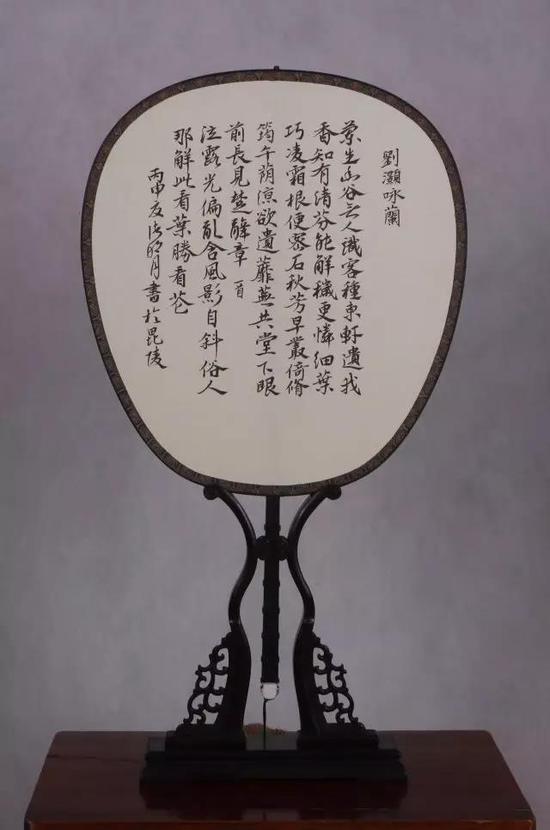 劉灝咏蘭
蘭生幽谷无人識客種東軒遺我
香知有清芬能解穢更憐細葉
巧凌霜根便密石秋芳早叢倚脩
筠午荫涼欲遺蘼蕪共堂下眼
前長見楚辭章
泣露光偏亂含風影自斜俗人
那解此看葉勝看花
丙申夏明月書於毘陵